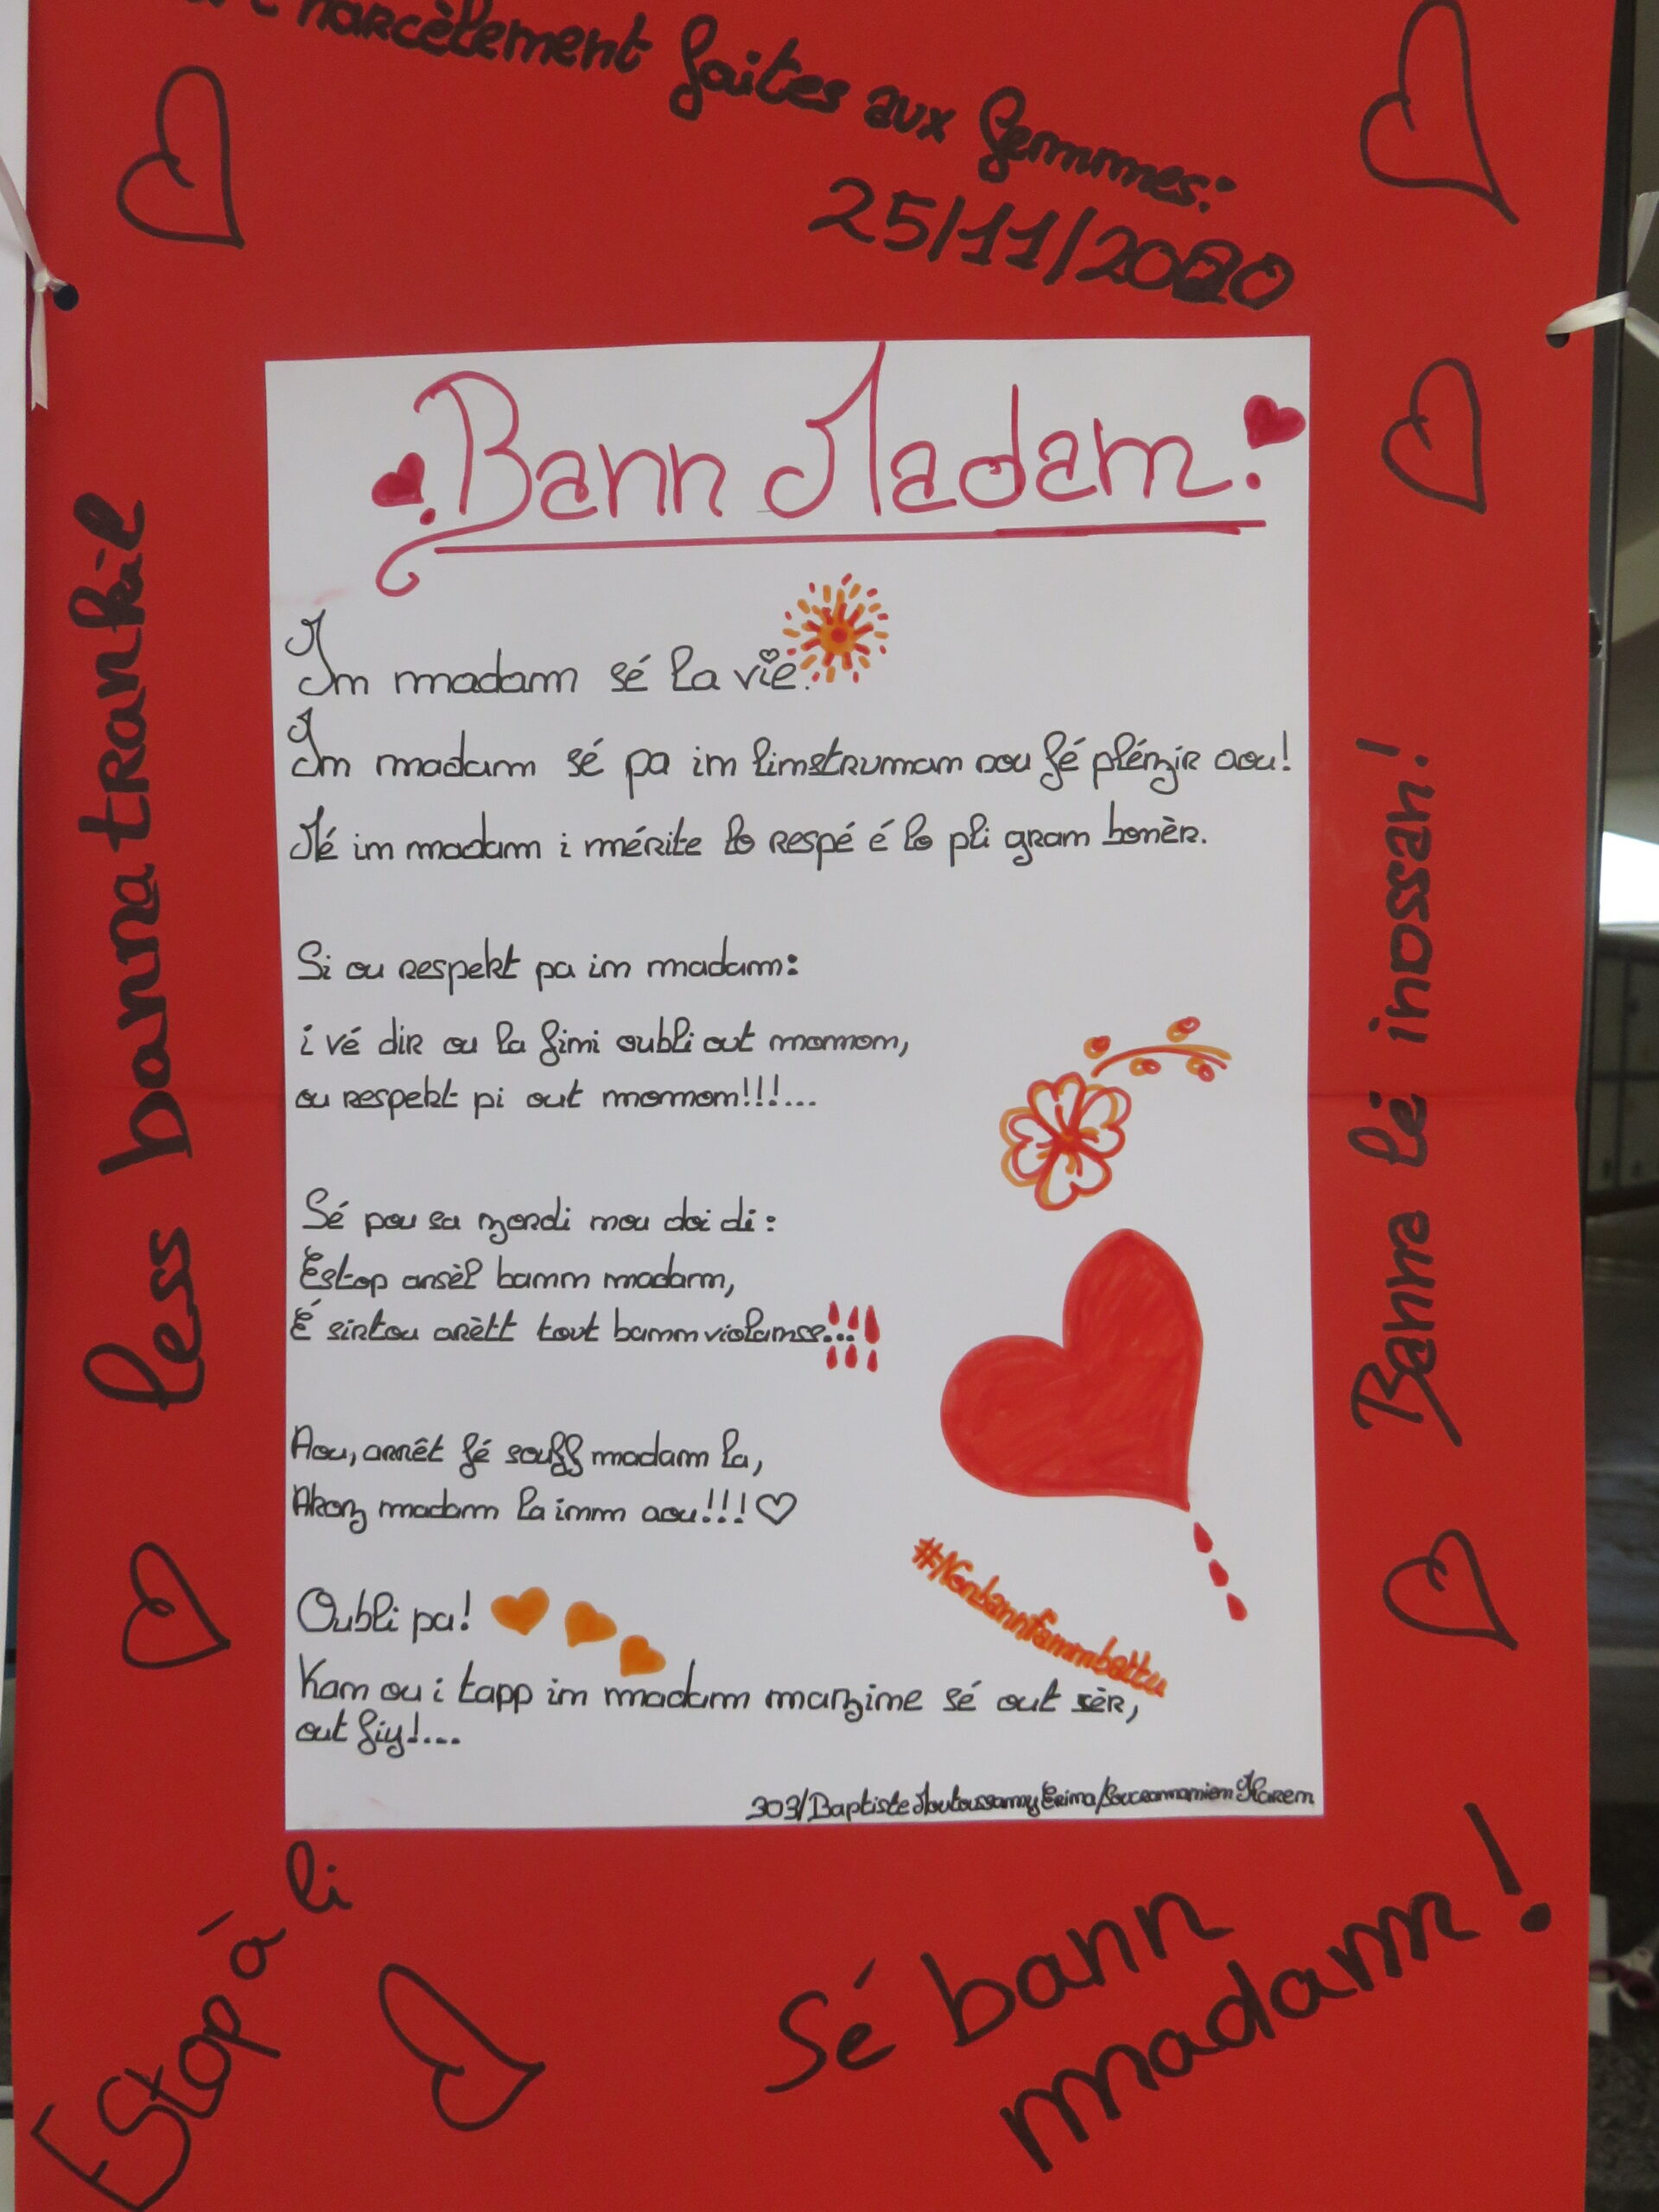 harcèlement faites aux femmes:
25/11/2020
Bann Madam
In madam sé la vie.
In madam sé pa in linstruman oou fé plénzir aou!
Mé in madam i mérite lo respé é lo pli gran bonèr.
Si ou respekt pa in madam:
i vé dir ou la fini oubli out momon,
ou respekt pi out momon!!!...
Sé pou sa zordi nou doi di:
Estop ansèl bann madam,
É sirtou arètt tout bann violanss...!!!
Aou, arrêt fé souff madam la,
Akoz madam la inm aou!!!
Oubli pa!
Kan ou i tapp in madam manzine sé out sèr,
out fiy!...
#Nonbannfammbattu
303/Baptiste Moutoussamy Erina/Soucramanien Maren
less banna trankil
Banna lé inossan!
Estop à li
Sé bann
madam!